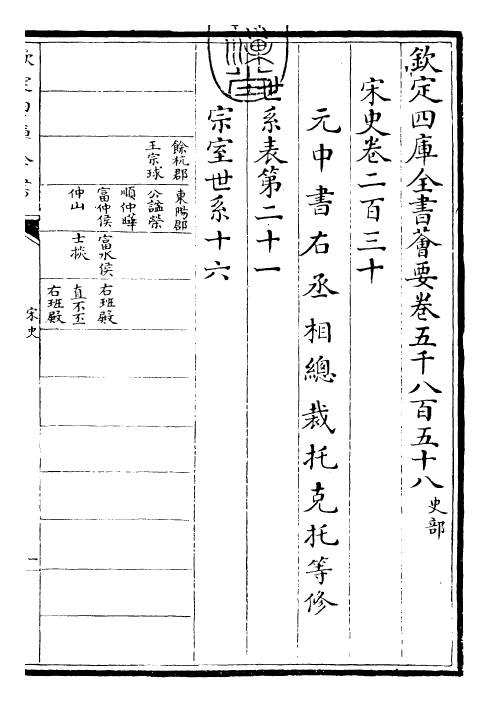 欽定四庫全書薈要卷五千八百五十八 史部
宋史卷二百三十
元中書右丞相總裁托克托等修
世系表第二十一
宗室世系十六
餘杭郡 東陽郡
王宗球 公諡榮
順仲曄
富仲侯 富水侯 右班殿
仲山 士掞 直不丕
右班殿
宋史
一